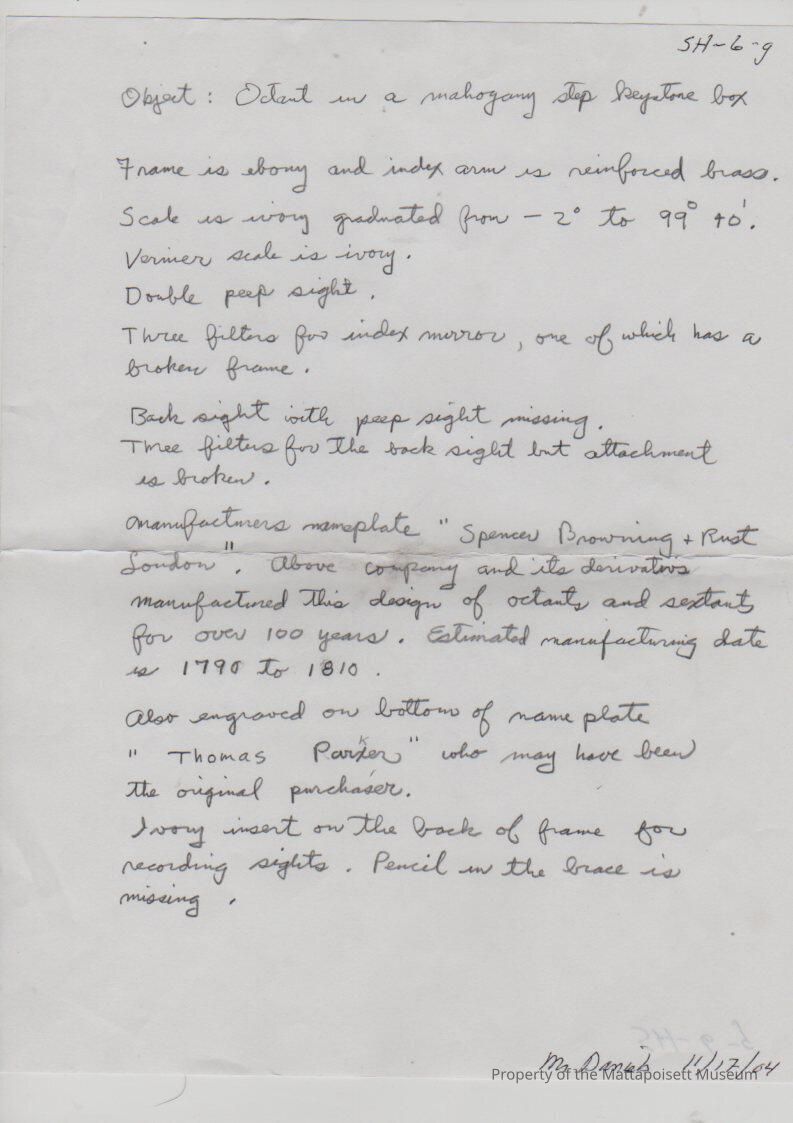 SH-6-9
Object : Octant in a mahogany step keystone box
Frame is ebony and index arm is reinforced brass.
Scale is ivory graduated from - 2° to 99° 40'.
Vernier scale is ivory.
Double peep sight.
Three filters for index mirror, one of which has a
broken frame.
Back sight with peep sight missing.
Three filters for the back sight but attachment
is broken.
Manufacturers nameplate "Spencer Browning + Rust
London". Above company and its derivatives
manufactured this design of octants and sextants
for over 100 years. Estimated manufacturing date
is 1790 to 1810.
Also engraved on bottom of name plate
"Thomas Parker" who may have been
the original purchaser.
Ivory insert on the back of frame for
recording sights. Pencil in the brace is
missing.
11/17/04
Property of the Mattapoisett Museum